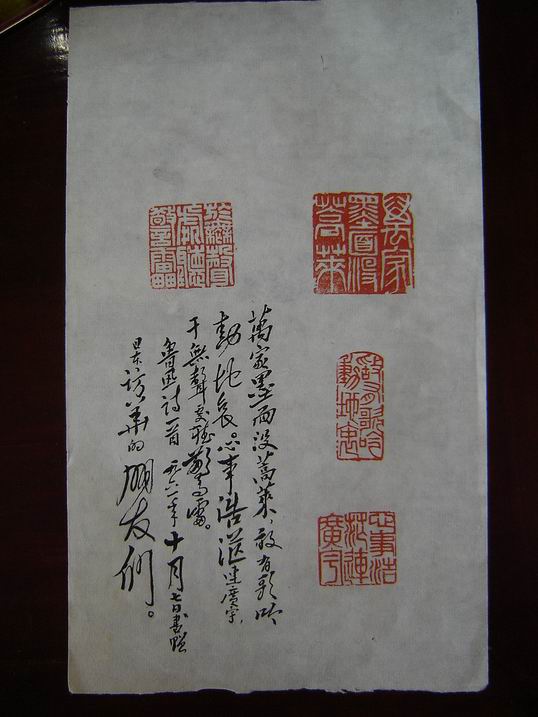 萬家
墨面没
蒿萊
敢有歌吟
動地哀
心事浩
茫連
廣宇
於無聲
處聽
驚雷
萬家墨面没蒿萊，敢有歌吟
動地哀。心事浩茫連廣宇，
于無聲處聽驚雷。
魯迅詩一首 一九六一年十月七日書贈
日本訪華的朋友們。